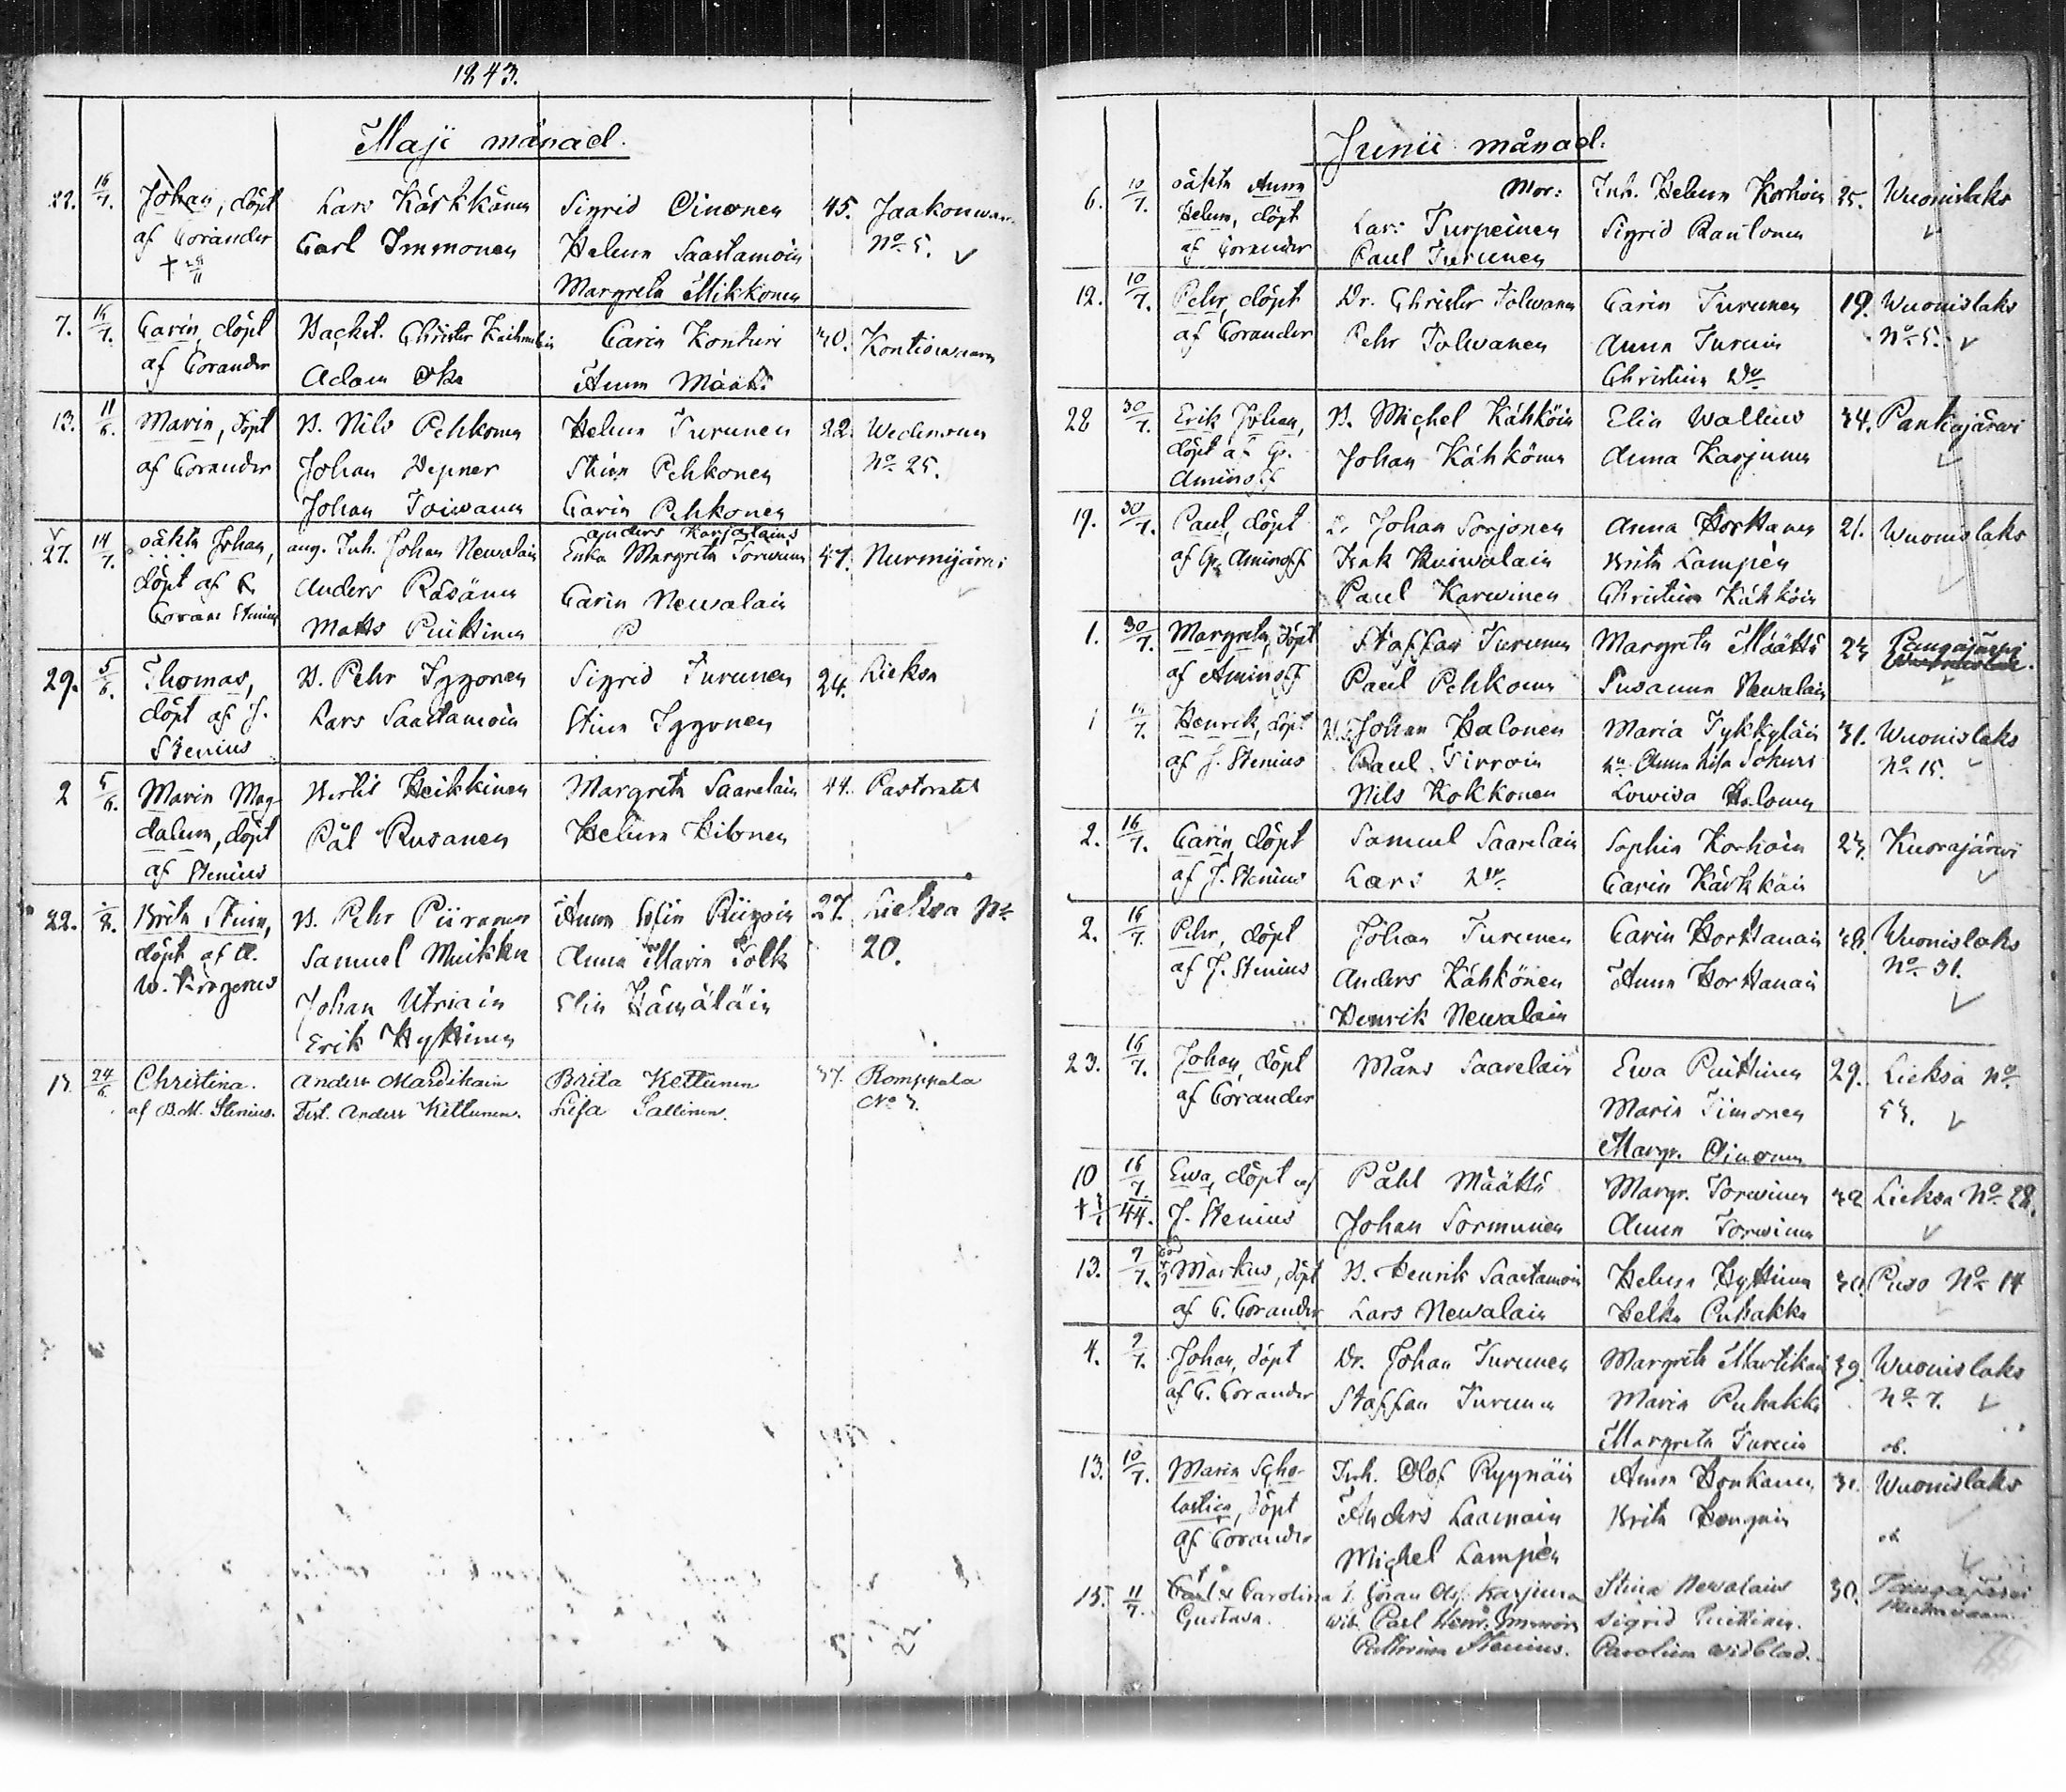 1843.
Maji månad.
22. 16/7. Johan, döpt Lars Kärkkänen Sigrid Oinonen 45. Jaakonwaa
af Corander Carl Immonen Helena Saastamoin No 5.
Margreta Mikkonen
7. 16/7. Carin, döpt Backst. Christer Carin Konturi 40. Kontiowaara
af Corander Adam Oka Anna Määtt
13. 11/6. Maria, döpt B. Nils Pehkonen Helena Turunen 22. Wiekinsuu
af Corander Johan Vepner Stina Pehkonen No 25.
Johan Toiwanen Carin Pehkonen
Anders Karjalains
27. 14/7. oäkta Johan, ang. Inh. Johan Newalain Enka Margreta Torwinen 47. Nurmijärwi
döpt af Anders Räsänen Carin Newalain
Stenius Matts Piittinen
29. 5/6. Thomas, B. Pehr Iggonen Sigrid Turunen 24. Lieksa
döpt af J. Lars Saastamoin Stina Iggonen
Stenius
2 5/6. Maria Mag- Bertil Heikkinen Margreta Saarelain 44. Pastoratet
dalena, döpt Pål Rusanen Helena Hilonen
af Stenius
22. Brita Stina, B. Pehr Piiranen Anna Elin Riizoin 27. Lieksa No
döpt af A. Samuel Muikku Anna Maria Folk 20.
W. Krogerus Johan Utriain Elin Hämäläin
Erik Hyttinen
17. 24/6. Christina. Anders Mardikain Brita Kettunen 37. Romppala
af B.M. Stenius. Test. Anders Kettunen. Lisa Sallinen. No 7.
Junii månad.
6. 10/7. oäkta Anna Mor: Inh. Helena Korhoin 25. Wuonislaks
Helena, döpt Lars Turpeinen Sigrid Rautonen
af Corander Paul Turunen
12. 10/7. Pehr, döpt Dr. Christer Tolwanen Carin Turunen 19. Wuonislaks
af Corander Pehr Tolwanen Anna Turuin No 5.
Christina Do
28 30/7. Erik Johan, B. Michel Kähköin Elin Wallius 34. Pankajärwi
döpt af Gr. Johan Kähkönen Anna Karjunen
Aminoff
19. 30/7. Paul, döpt Dr Johan Sorjonen Anna Horttanen 21. Wuonislaks
af Gr. Aminoff Isak Huiwalain Brita Lampén
Paul Karwinen Christina Kähköin
1. 30/7. Margreta, döpt Staffan Turunen Margreta Määttä 23 Pangajärvi
af Aminoff Paul Pehkonen Susanna Newalain
1 Henrik, döpt Johan Halonen Maria Tykkyläin 31. Wuonislaks
af J. Stenius Paul Tirroin Anna Lisa Sokuri No 15.
Nils Kokkonen Lowisa Halonen
2. 16/7. Carin, döpt Samuel Saarelain Sophia Korhoin 23. Kuorajärwi
af J. Stenius Lars Do Carin Kärkkäin
2. 16/7. Pehr, döpt Johan Turunen Carin Horttanain 38. Wuonislaks
af J. Stenius Anders Kähkönen Anna Horttanain No 31.
Henrik Newalain
23. 16/7. Johan, döpt Måns Saarelain Ewa Piittinen 29. Lieksa No
af Corander Maria Timonen 53.
Margr. Oinonen
10 16/7. Ewa, döpt af Påhl Määttä Margr. Torwinen 32 Lieksa No 28.
44. J. Stenius Johan Sormunen Anna Torwinen
13. 9/7. Markus, döpt B. Henrik Saastamoin Helena Hyttinen 30 Puso No 14
af C. Corander Lars Newalain Helka Puhakka
4. 9/7. Johan, döpt Dr. Johan Turunen Margreta Martikain 39. Wuonislaks
af C. Corander Staffan Turunen Maria Puhakka No 7.
Margreta Turuin ob.
13. 10/7. Maria Scho- Inh. Olof Ryynäin Anna Honkanen 31. Wuonislaks
lastica, döpt Anders Laamain Brita Hongain
af Corander Michel Lampén ob
15. 11/7. Carolina Göran Karjunen Stina Newalain 30. Pangajärvi
Gustava. Carl Henr. Immoin Sigrid Piittinen.
Stenius. Carolina Widblad.